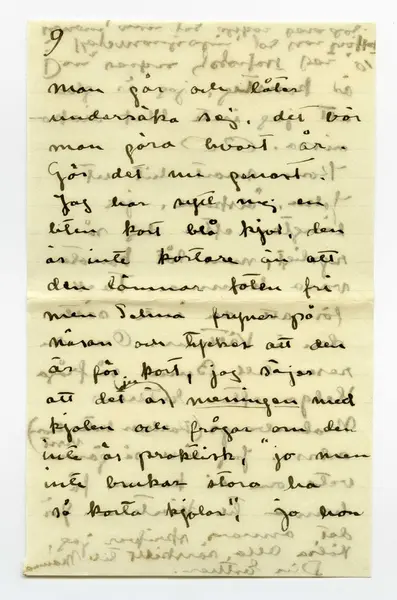 9
man går och låter
undersöka sig, det bör
man göra hvart år.
Gör det nu genast.
Jag har sytt mig en
liten kort blå kjol, den
är inte kortare än att
den lämnar foten fri
men Selma fryner på
näsan och tycker att den
är för kort, jag säger
att det är ju meningen med
kjolen och frågar om den
inte är praktisk, "jo men
inte brukar stora ha
så korta kjolar", jo hon